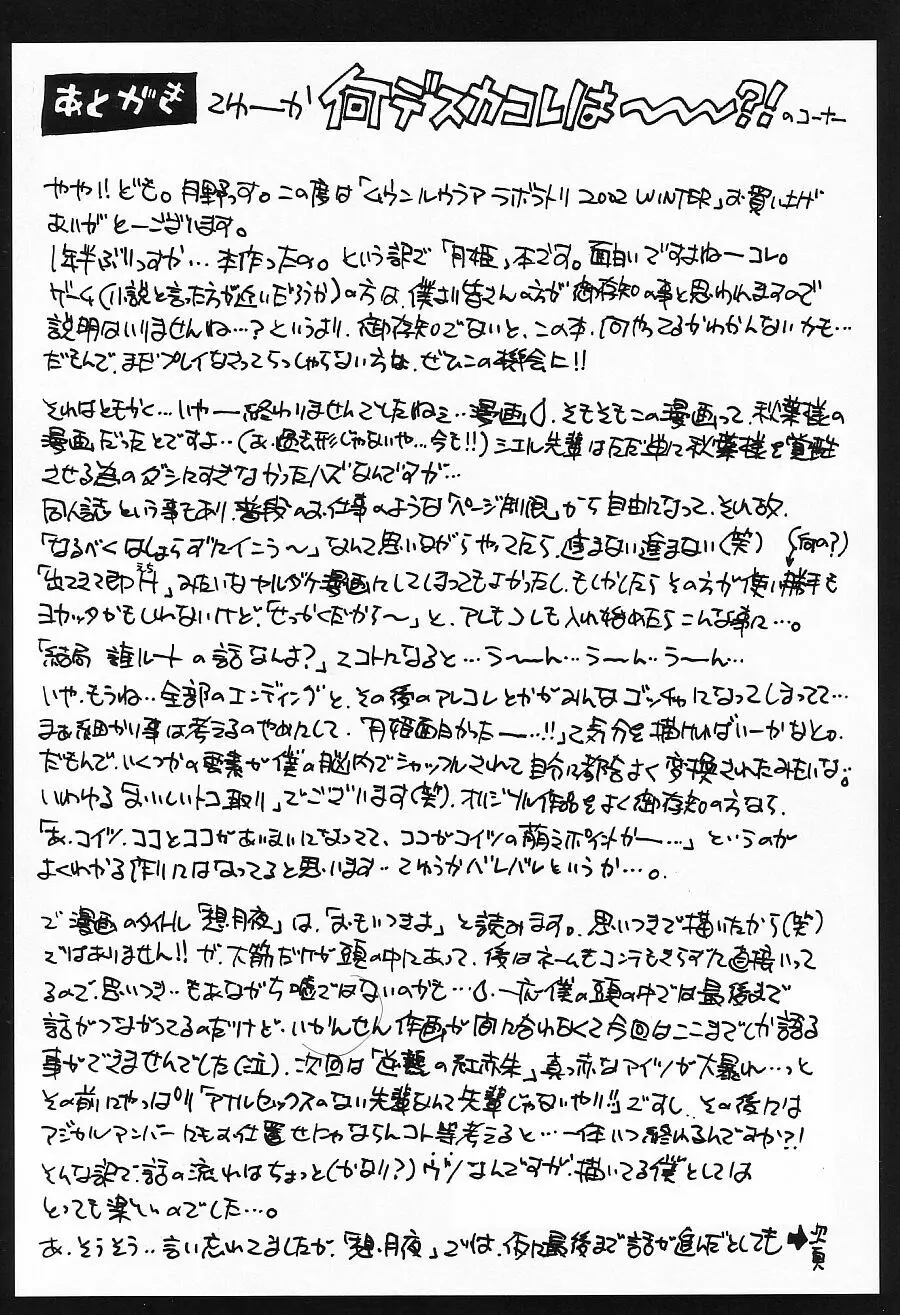 あとがき てゆーか 何デスカコレは〜〜〜?! のコーナー
やや!!ども。月野っす。この度は「ムウンルウラア ラボラトリ 2002 WINTER」お買い上げ
ありがとーございます。
1年半ぶりっすか…本作ったの。という訳で「月姫」本です。面白いですよねーコレ。
ゲーム(小説と言った方が近いだろうか)の方は、僕より皆さんの方が御存知の事と思われますので
説明はいりませんね…?というより、御存知でないと、この本、何やってるかわかんないかも…
だもんで、まだプレイなさってらっしゃらない方は、ぜひこの機会に!!
それはともかく…いやー終わりませんでしたねェ…漫画。そもそもこの漫画って、秋葉様の
漫画だったとですよ…(あ、過去形じゃないや…今も!!)シエル先輩はただ単に秋葉様を覚醒
させる為のダシにすぎなかったハズなんですが…
同人誌という事もあり、普段のお仕事のような「ページ制限」から自由になって、それ故、
「なるべくはしょらずにイこう〜」なんて思いながらやってたら、進まない進まない(笑) (何の?)
「出てきて即H」みたいなヤルダケ漫画にしてしまってもよかったし、もしかしたらその方が使い勝手も
ヨカッタかもしれないけど、「せっかくだから〜」と、アレもコレも入れ始めたらこんな事に…。
「結局 誰ルートの話なんよ?」てコトになると…う〜〜ん…う〜ん…う〜ん…
いや、もうね…全部のエンディングと、その後のアレコレとかがみんなゴッチャになってしまってて…
まぁ細かい事は考えるのやめにして、「月姫面白かったー…!!」て気分を描ければいーかなと。
だもんで、いくつかの要素が僕の脳内でシャッフルされて自分に都合よく変換されたみたいな。
いわゆる「おいしいトコ取り」でございます(笑)。オリジナル作品をよく御存知の方なら、
「あ、コイツ、ココとココがあいまいになってて、ココがコイツの萌えポイントかー…」というのが
よくわかる作りにはなってると思います…てゆうかバレバレというか…。
で漫画のタイトル「想月夜」は、「おもいつきよ」と読みます。思いつきで描いたから(笑)
ではありません!!が、大筋だけが頭の中にあって、後はネームもコンテもきらずた直接いって
るので、思いつき…もあながち嘘ではないのかも…。一応僕の頭の中では最後まで
話がつながってるのだけど、いかんせん作画が間に合わなくて今回はここまでしか語る
事ができませんでした(泣)。次回は「逆襲の紅赤朱」真っ赤なアイツが大暴れ…っと
その前にやっぱり「アナルセックスのない先輩なんて先輩じゃないやい!!」ですし、その後には
マジカルアンバーにもお仕置せにゃならんコト等考えると…一体いつ終わるんですか?!
そんな訳で、話の流れはちょっと(かなり?)ヴツなんですが、描いてる僕としては
とっても楽しいのでした…。
あ、そうそう…言い忘れてましたが、「想月夜」では、仮に最後まで話が進んだとしても➡次頁